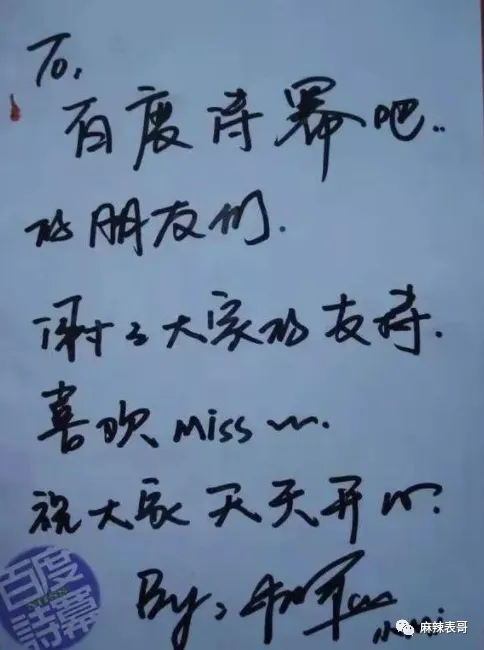 To,
百度诗幂吧..
的朋友们.
谢谢大家的支持.
喜欢Miss~.
祝大家天天开心.
By,
百度
MISS
詩冪
麻辣表哥